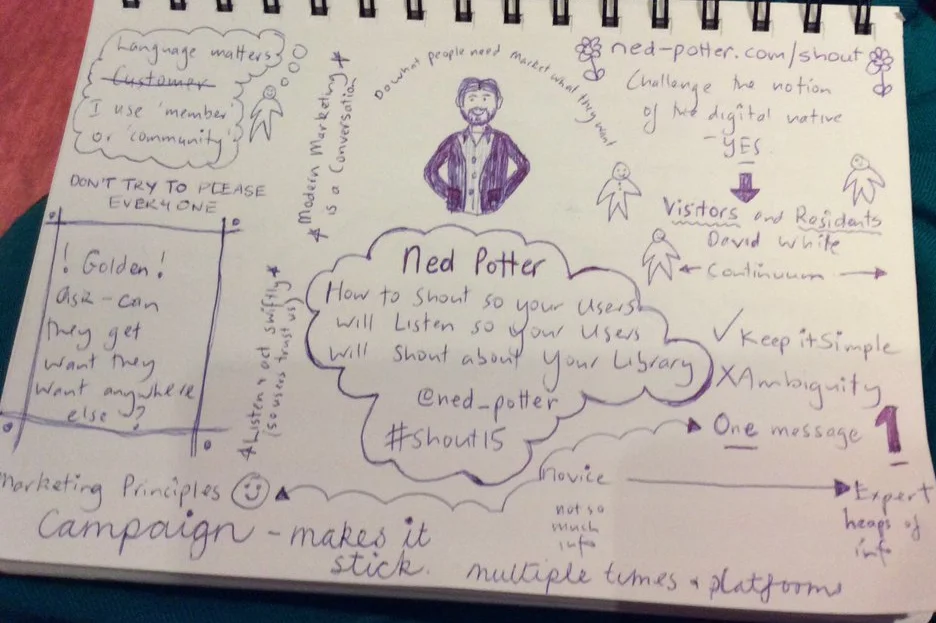 Language matters
Customer
I use 'member'
or 'community'
DON'T TRY TO PLEASE
EVERYONE
! Golden !
ask - can
they get
want they
want anywhere
else?
* Modern Marketing *
is a Conversation
* Listen & act swiftly *
(so users trust us)
Do what people need market what they want
ned-potter.com/shout
Challenge the notion
of the digital native
- YES
Visitors and Residents
David White
Continuum
Ned Potter
How to shout so your users
will Listen so your Users
will shout about your Library
@ned_potter
#shout15
✓ Keep it Simple
X Ambiguity
One message 1
Marketing Principles
novice
not so
much
info
Expert
heaps of
info
Campaign - makes it
stick. multiple times & platforms